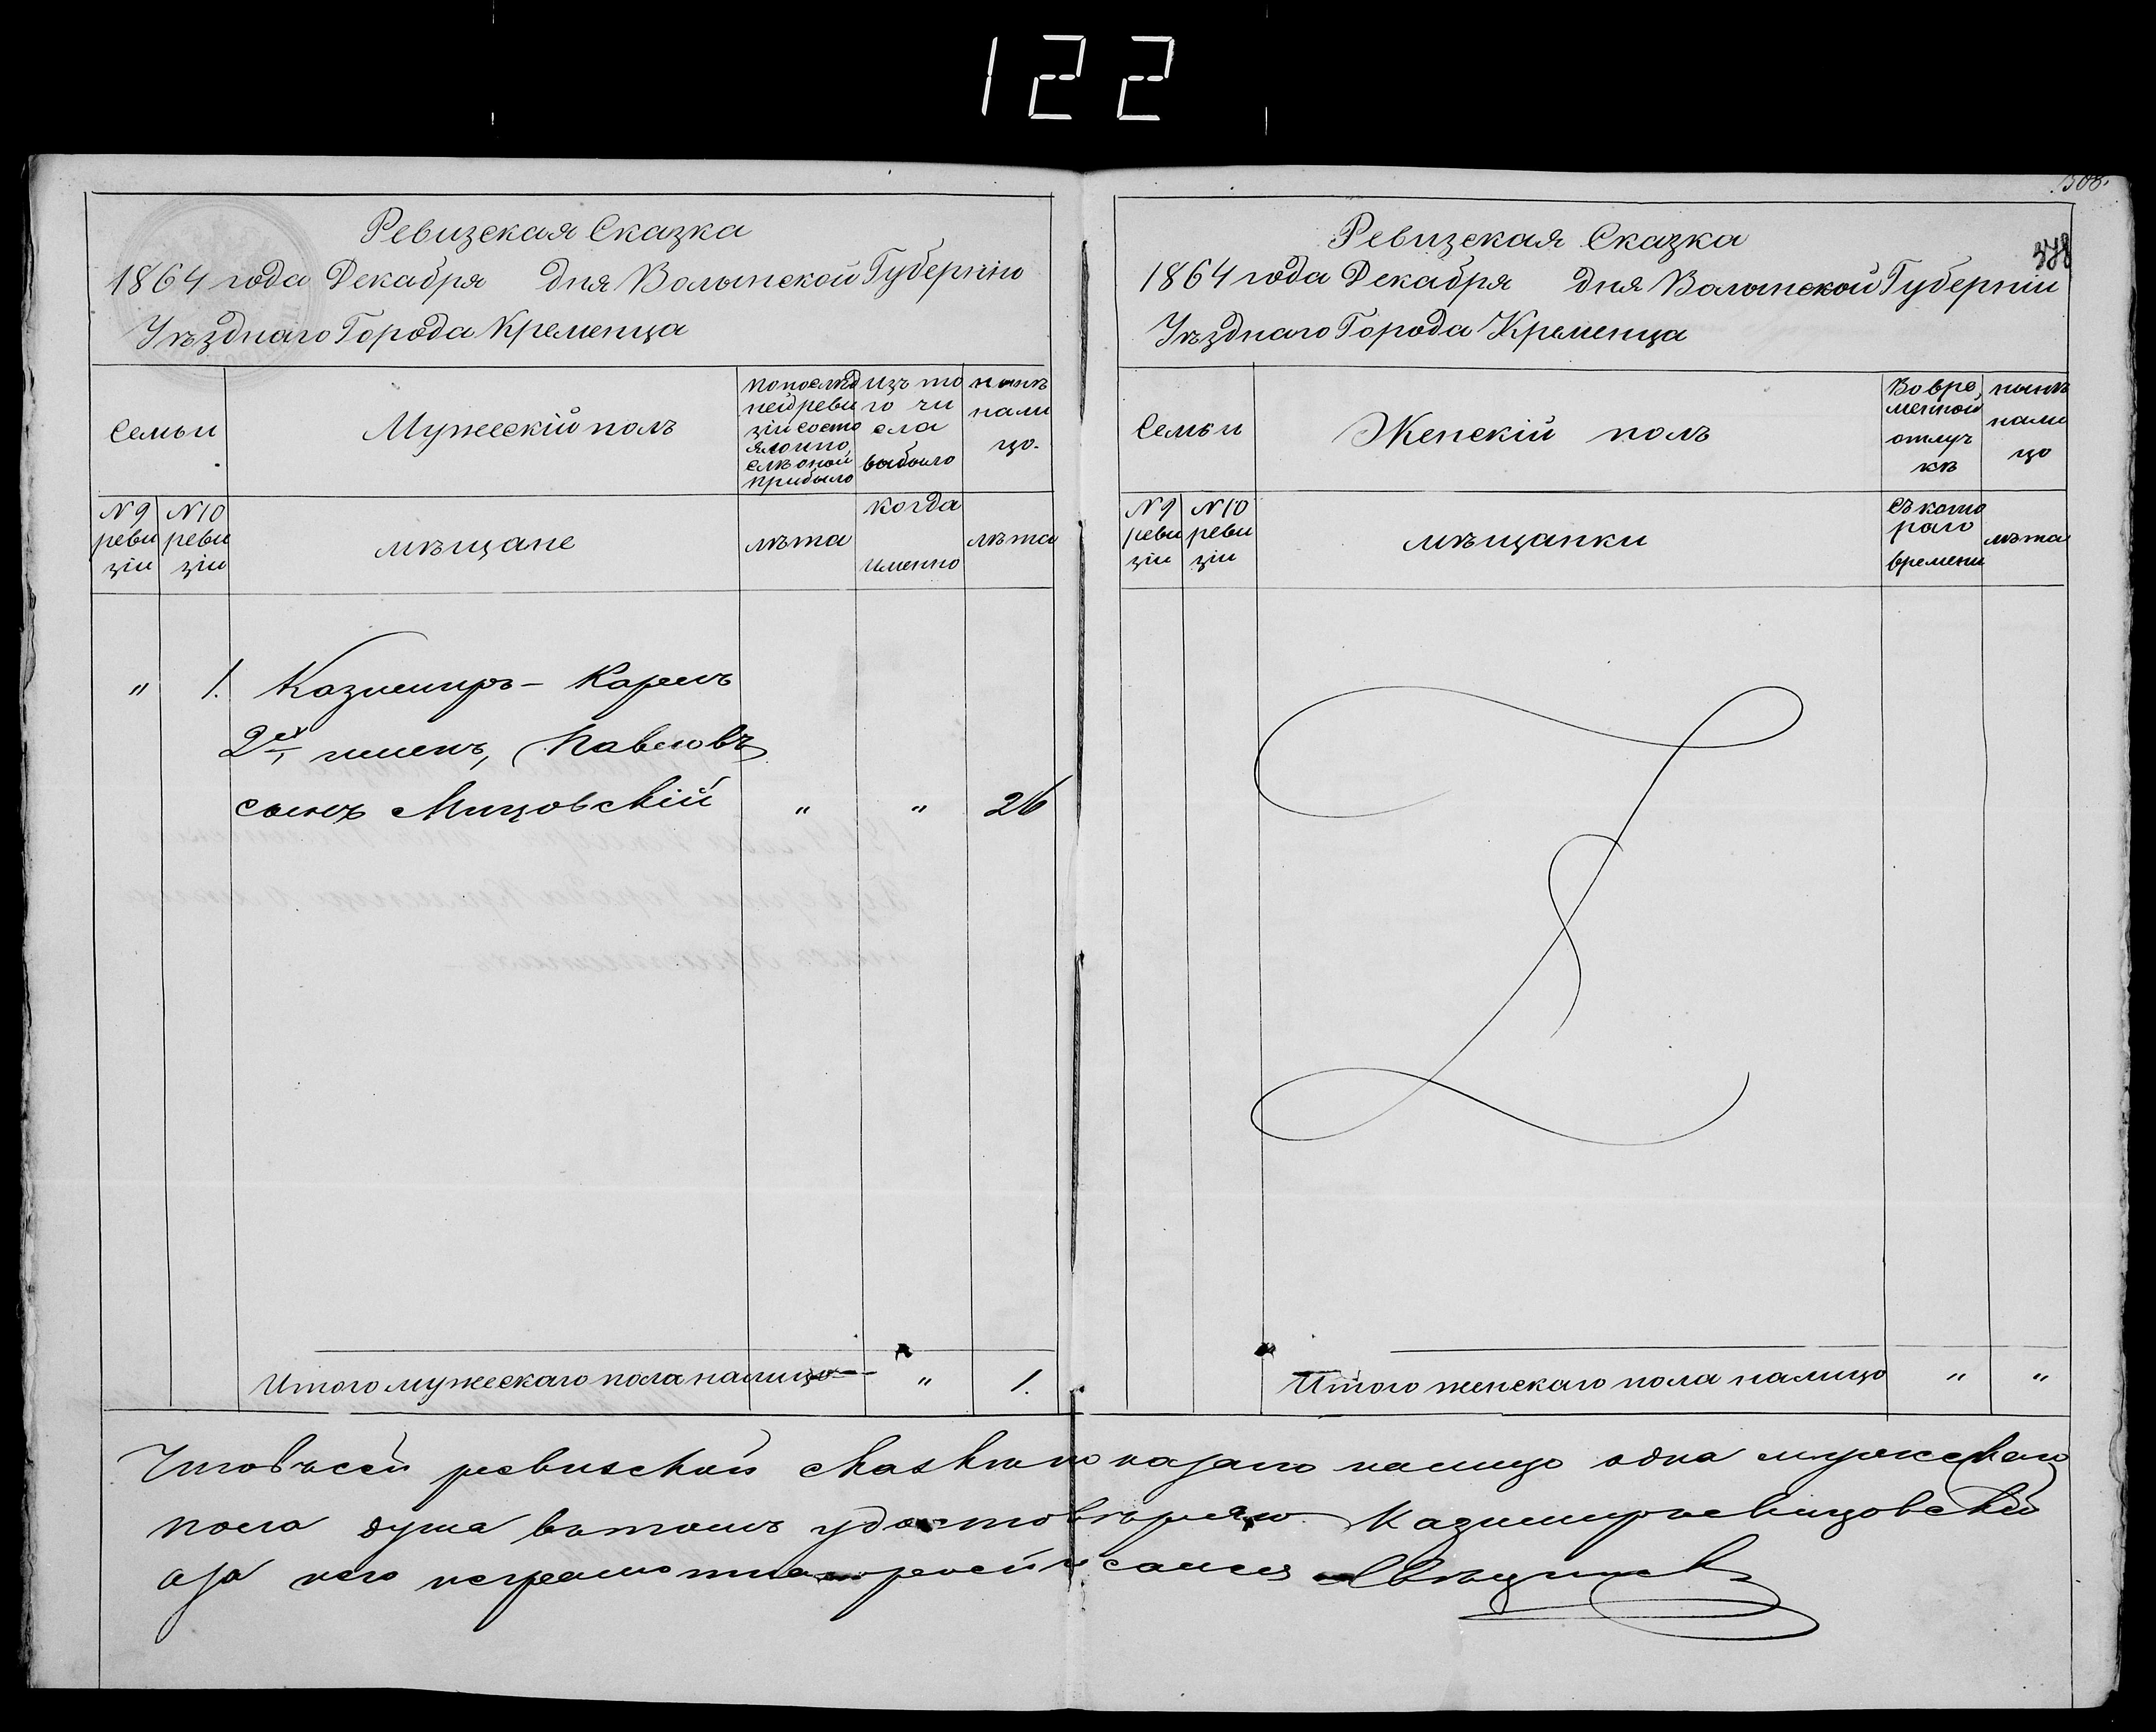 122
308.
Ревизская Сказка
1864 года Декабря дня Волынской Губернiи
Уѣзднаго Города Кременца
Семьи
Мужескiй полъ
по послѣд
ней реви
зiи состо
яло и по
слѣ оной
прибыло
изъ то
го чи
сла
выбыло
нынѣ
нали
цо.
N 9
реви
зiи
N 10
реви
зiи
мѣщане
лѣта
когда
именно
лѣта
" 1. Казимиръ – Кароль
2хъ именъ, Павловъ
сынъ Мицовскiй " " 26
Итого мужескаго пола налицо " 1.
Ревизская Сказка
1864 года Декабря дня Волынской Губернiи
Уѣзднаго Города Кременца
Семьи
Женскiй полъ
Во вре
менной
отлуч
кѣ
нынѣ
нали
цо
N 9
реви
зiи
N 10
реви
зiи
мѣщанки
Съ кото
раго
времени
лѣта
Итого женскаго пола налицо " "
Что въ сей ревиской сказки показано налицо одна мужескаго
пола душа въ томъ удостовѣряю Казимиръ Мицовскiй
а за него неграмотнаго